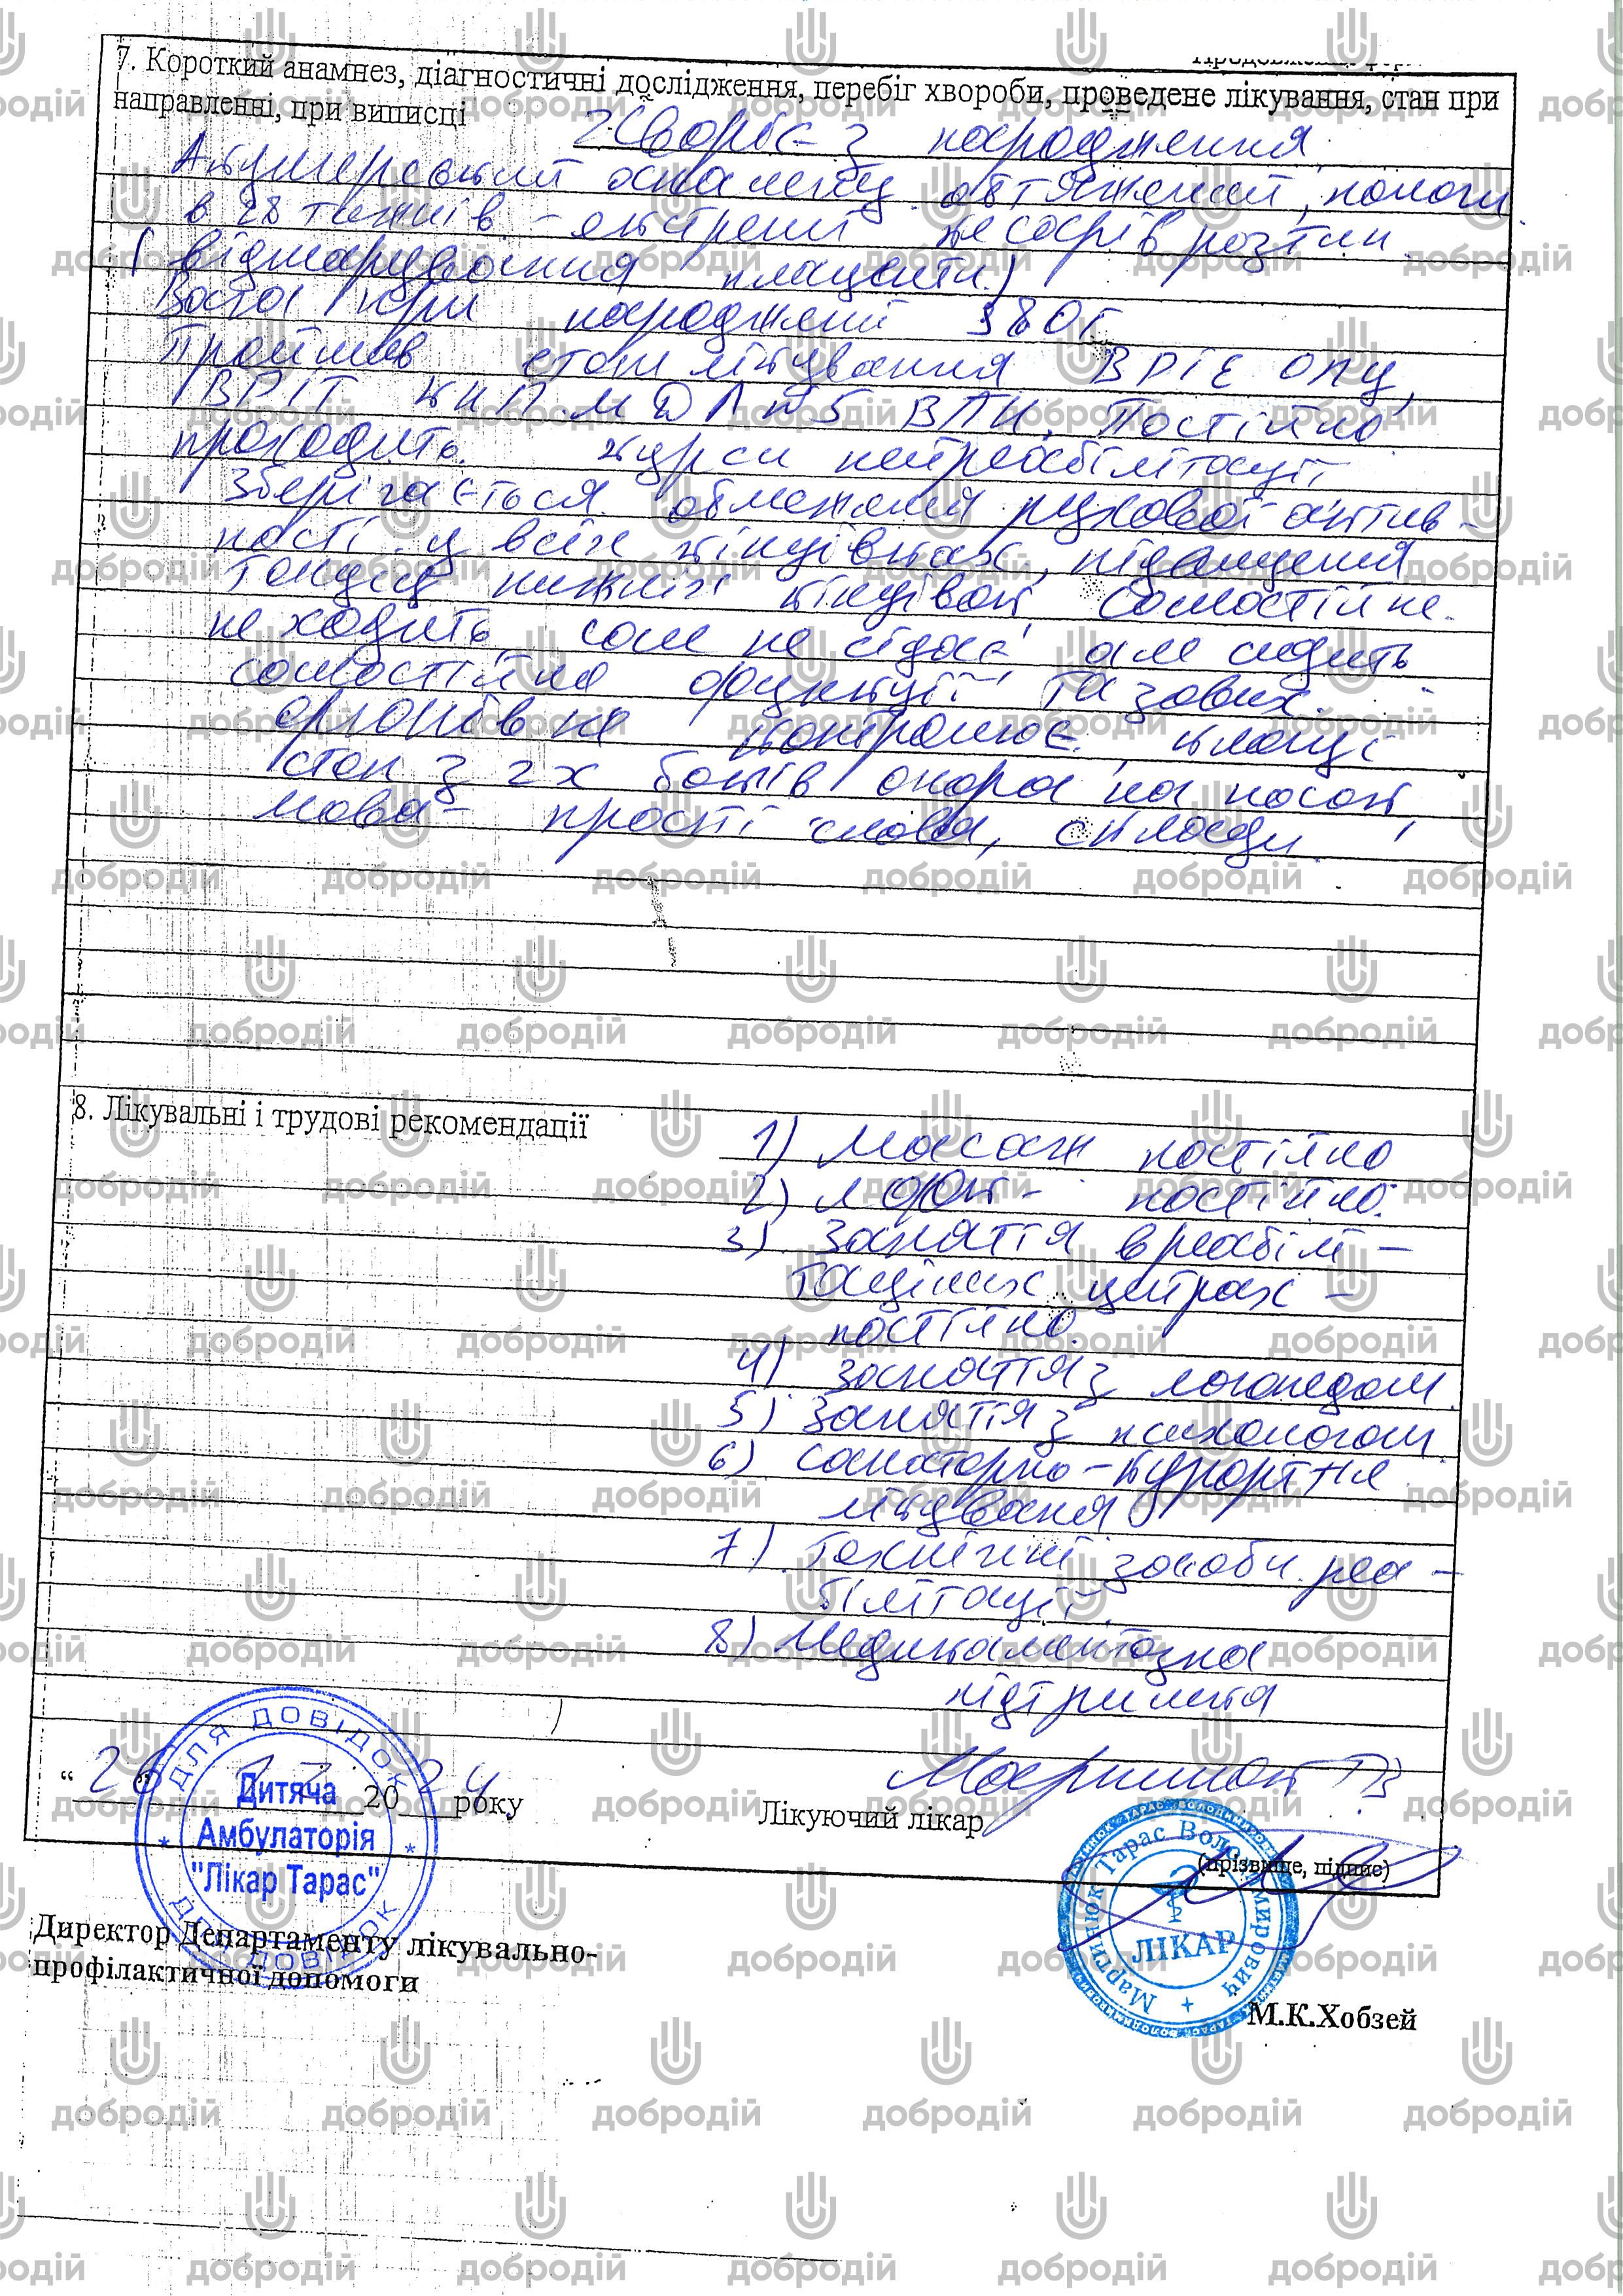 7. Короткий анамнез, діагностичні дослідження, перебіг хвороби, проведене лікування, стан при
направленні, при виписці Хворіє з народження,
Акушерський анамнез обтяжений, пологи
в 28 тижнів - екстрений кесарів розтин
(відшарування плаценти)
Вага при народженні 980г
Пройшов етапи лікування ВРІТ ОПЦ,
ВРІТ КНП МДЛ №5 ВПН. Постійно
проходить курси нейрореабілітації
Зберігається обмеження рухової актив-
ності у всіх кінцівках, підвищення
тонусу нижніх кінцівок, самостійно
не ходить сам не сідає, але сидить
самостійно функції тазових
органів не контролює,
стоп з 2х боків опора на носок,
мова - прості слова, склади.
8. Лікувальні і трудові рекомендації
1) Масаж постійно
2) ЛФК - постійно.
3) Заняття в реабілі-
таційних центрах -
постійно.
4) Заняття з логопедом.
5) Заняття з психологом
6) Санаторно-курортне
лікування
7) Технічні засоби реа-
білітації.
8) Медикаментозна
підтримка
"26" 20 24 року
Лікуючий лікар Мартинюк ТВ
(прізвище, підпис)
ДЛЯ ДОВІДОК
Дитяча
Амбулаторія
"Лікар Тарас"
ДЛЯ ДОВІДОК
Мартинюк Тарас Володимирович
ЛІКАР
Директор Департаменту лікувально-
профілактичної допомоги
М.К.Хобзей
добродій